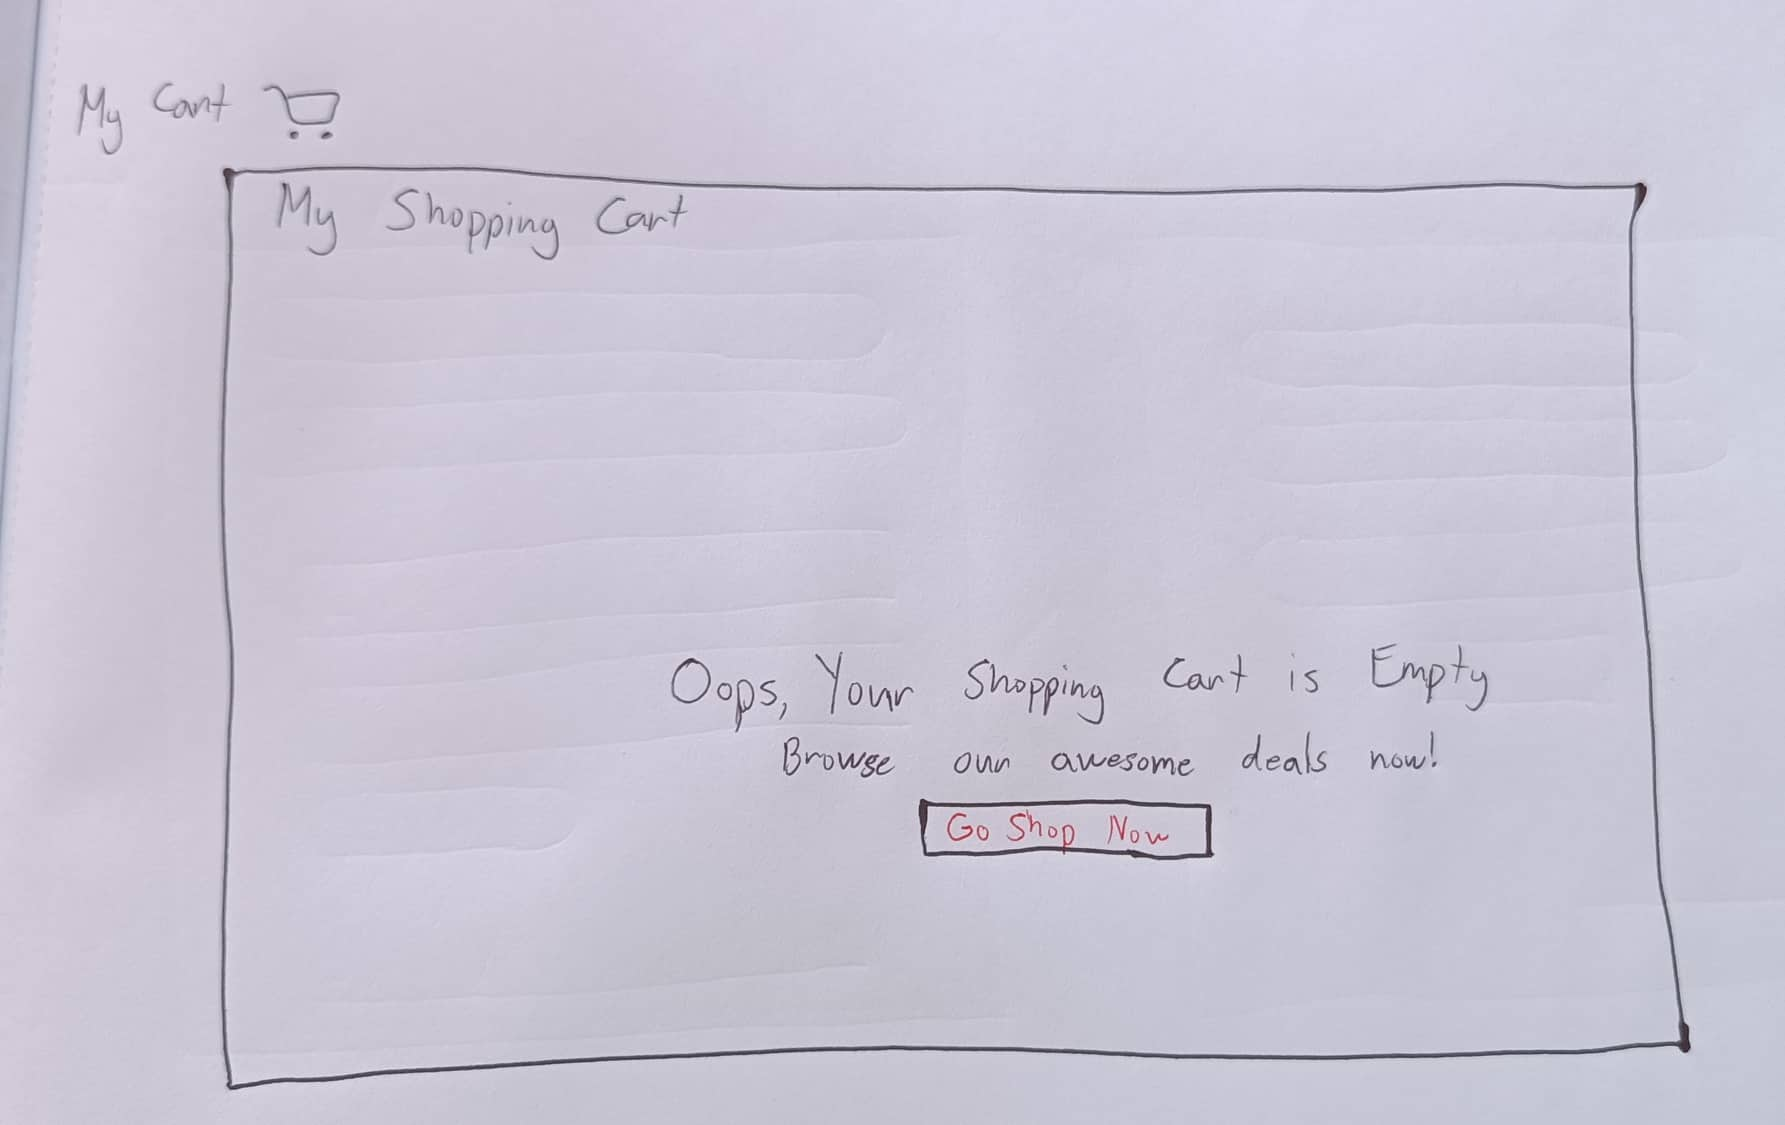 My Cart
My Shopping Cart
Oops, Your Shopping Cart is Empty
Browse our awesome deals now!
Go Shop Now